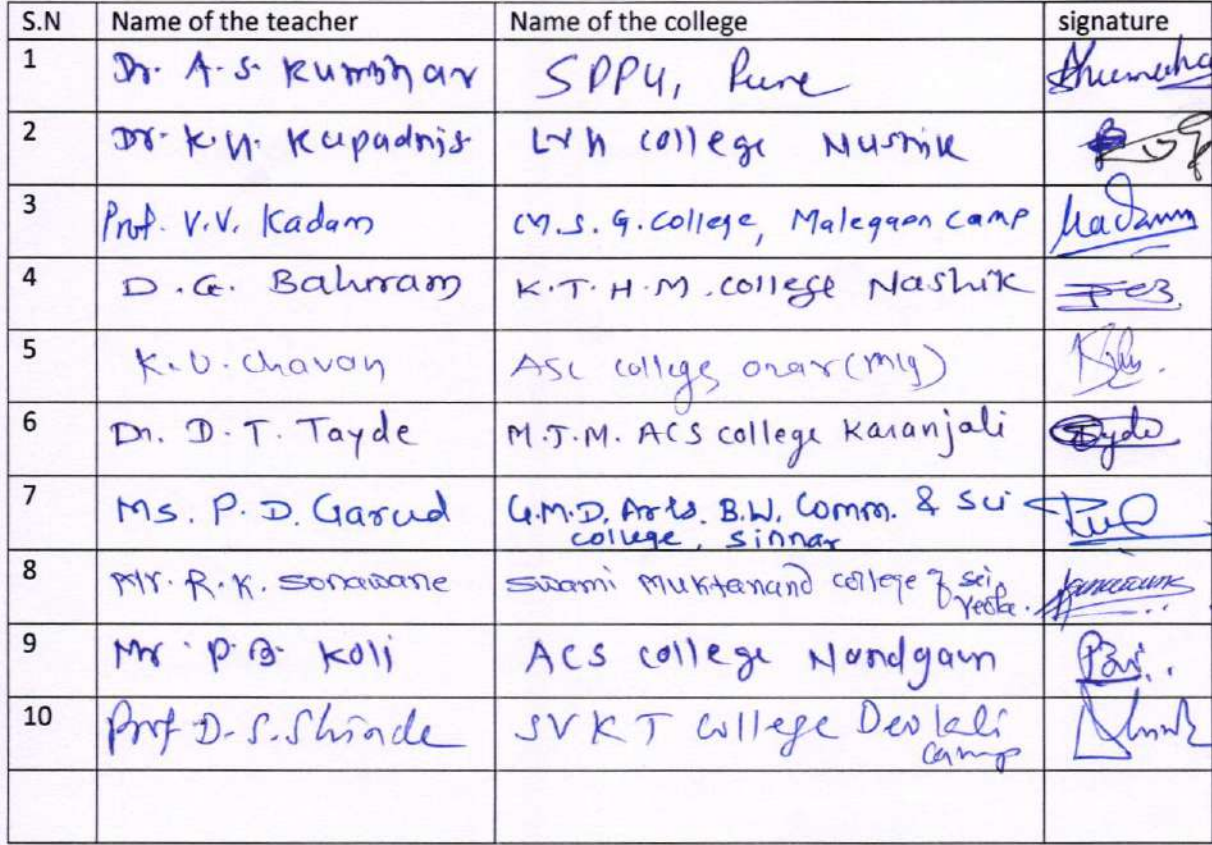 S.N Name of the teacher Name of the college signature
1 Dr. A. S. Kumbhar SPPU, Pune
2 Dr. K. H. Kapadnis LVH College Nashik
3 Prof. V. V. Kadam M.S.G. College, Malegaon Camp Kadam
4 D. G. Bahiram K.T.H.M. College Nashik
5 K. U. Chavan ASC college
6 Dr. D. T. Tayde M.J.M. ACS college Karanjali Tayde
7 Ms. P. D. Garud G.M.D. Arts. B.W. Comm. & Sci
college, Sinnar
8 Mr. R. K. Sonawane Swami Muktanand College of Sci
Yeola.
9 Mr P. B. Koli ACS College Nandgaon
10 Prof D. S. Shinde SVKT College Devlali
Camp